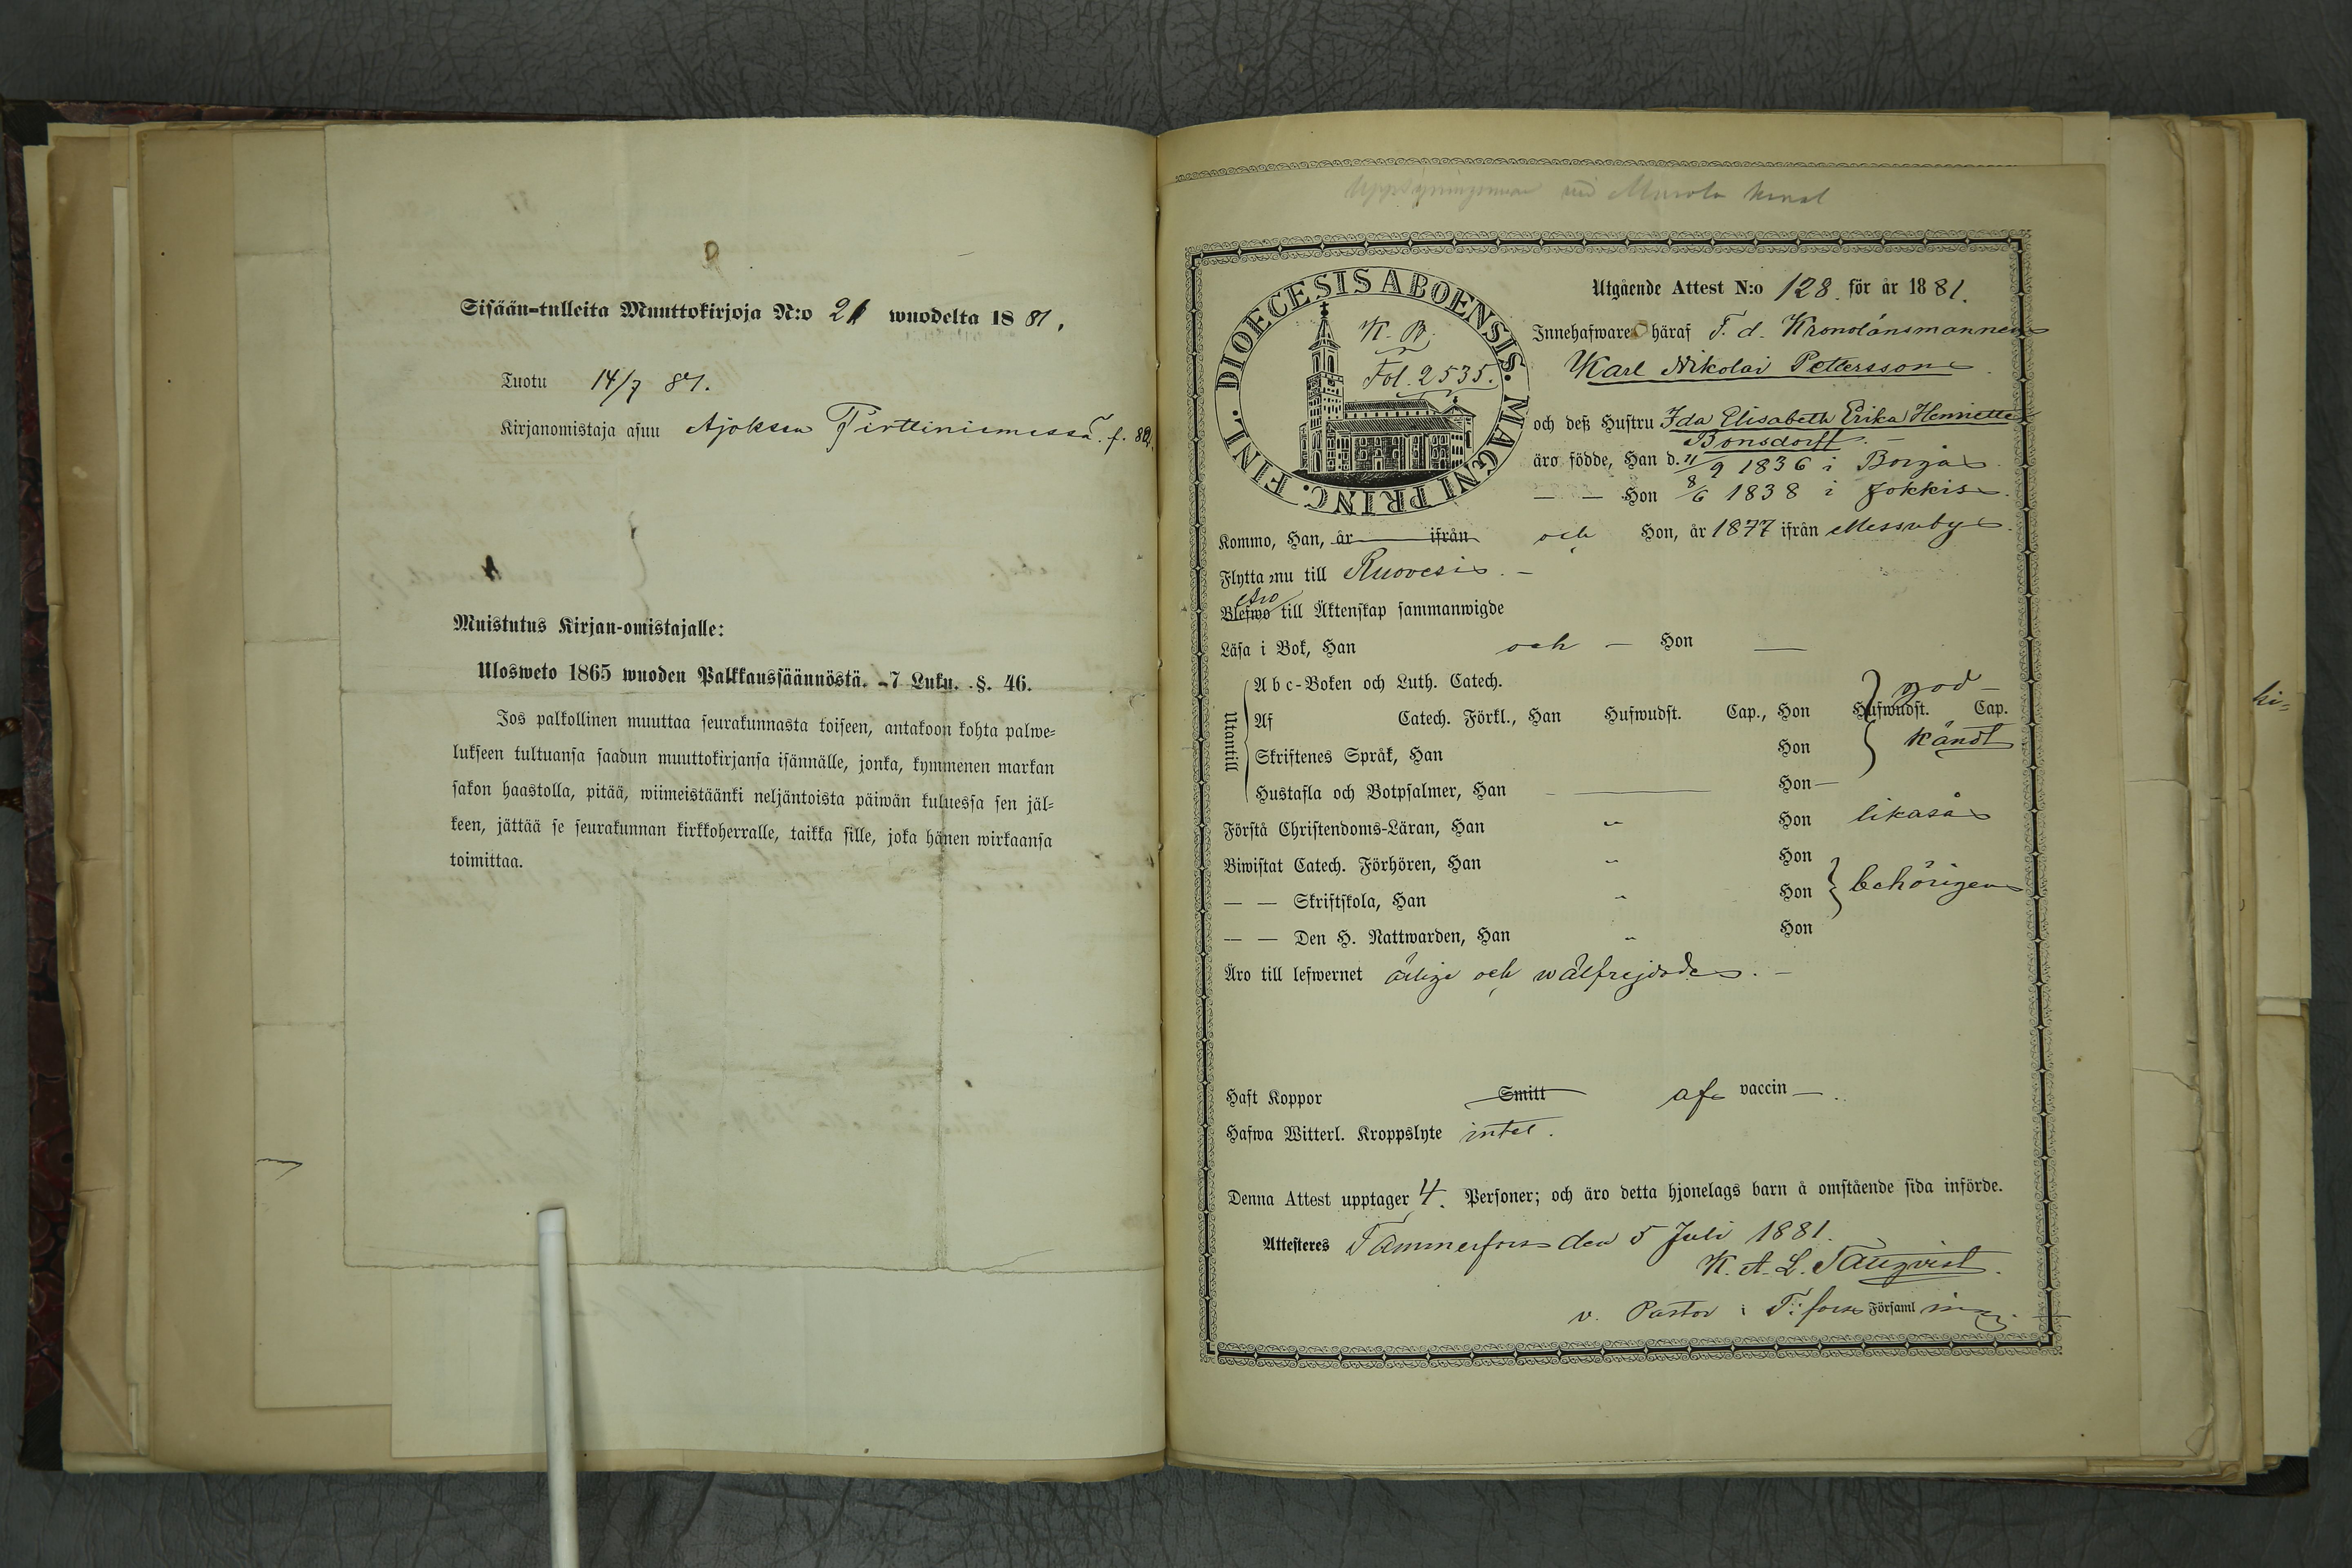 Sisään-tulleita Muuttokirjoja N:o 21 wuodelta 1881.
Tuotu 14/7 81.
Kirjanomistaja asuu Ajoksen Pirttiniemessä. f.
Muistutus Kirjan-omistajalle:
Ulosweto 1865 wuoden Palkkaussäännöstä. 7 Luku. §. 46.
Jos palkollinen muuttaa seurakunnasta toiseen, antakoon kohta palwe-
lukseen tultuansa saadun muuttokirjansa isännälle, jonka, kymmenen markan
sakon haastolla, pitää, wiimeistäänki neljäntoista päiwän kuluessa sen jäl-
keen, jättää se seurakunnan kirkkoherralle, taikka sille, joka hänen wirkaansa
toimittaa.
vid Murole kanal
DIOECESIS ABOENSIS. MAGNI PRINC. FINL.
K. B.
Fol. 2535.
Utgående Attest N:o 128. för år 1881.
Innehafware häraf F. d. Kronolänsmannen
Karl Nikolai Pettersson
och deß Hustru Ida Elisabeth Erika Henriette
Bonsdorff.
äro födde, Han d. 11/9 1836 i Borgå
— — Hon 8/6 1838 i Jokkis.
Kommo, Han, år ifrån och Hon, år 1877 ifrån Messuby.
Flytta nu till Ruovesi. —
Äro
Blefwo till Äktenskap sammanwigde
Läsa i Bok, Han och — Hon —
Utantill
Abc-Boken och Luth. Catech. god
Af Catech. Förkl., Han Hufwudst. Cap., Hon Hufwudst. Cap.
Skriftenes Språk, Han Hon känd
Hustafla och Botpsalmer, Han — Hon —
Förstå Christendoms-Läran, Han Hon likaså
Biwistat Catech. Förhören, Han Hon
— — Skriftskola, Han Hon behörigen
— — Den H. Nattwarden, Han Hon
Äro till lefwernet ärlige och wälfrejdade. —
Haft Koppor Smitt af vaccin —.
Hafwa Witterl. Kroppslyte intet.
Denna Attest upptager 4. Personer; och äro detta hjonelags barn å omstående sida införde.
Attesteres Tammerfors den 5 Juli 1881.
K. A. L. Tallqvist.
v. Pastor i T:fors Församling.